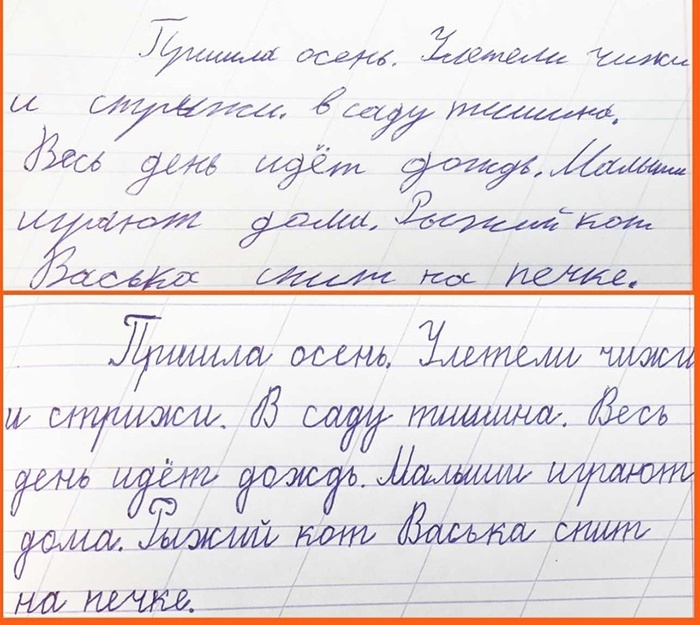 Пришла осень. Улетели чижи
и стрыжи. в саду тишина.
Весь день идёт дождь. Малыши
играют дома. Рыжий кот
Васька спит на печке.
Пришла осень. Улетели чижи
и стрижи. В саду тишина. Весь
день идёт дождь. Малыши играют
дома. Рыжий кот Васька спит
на печке.